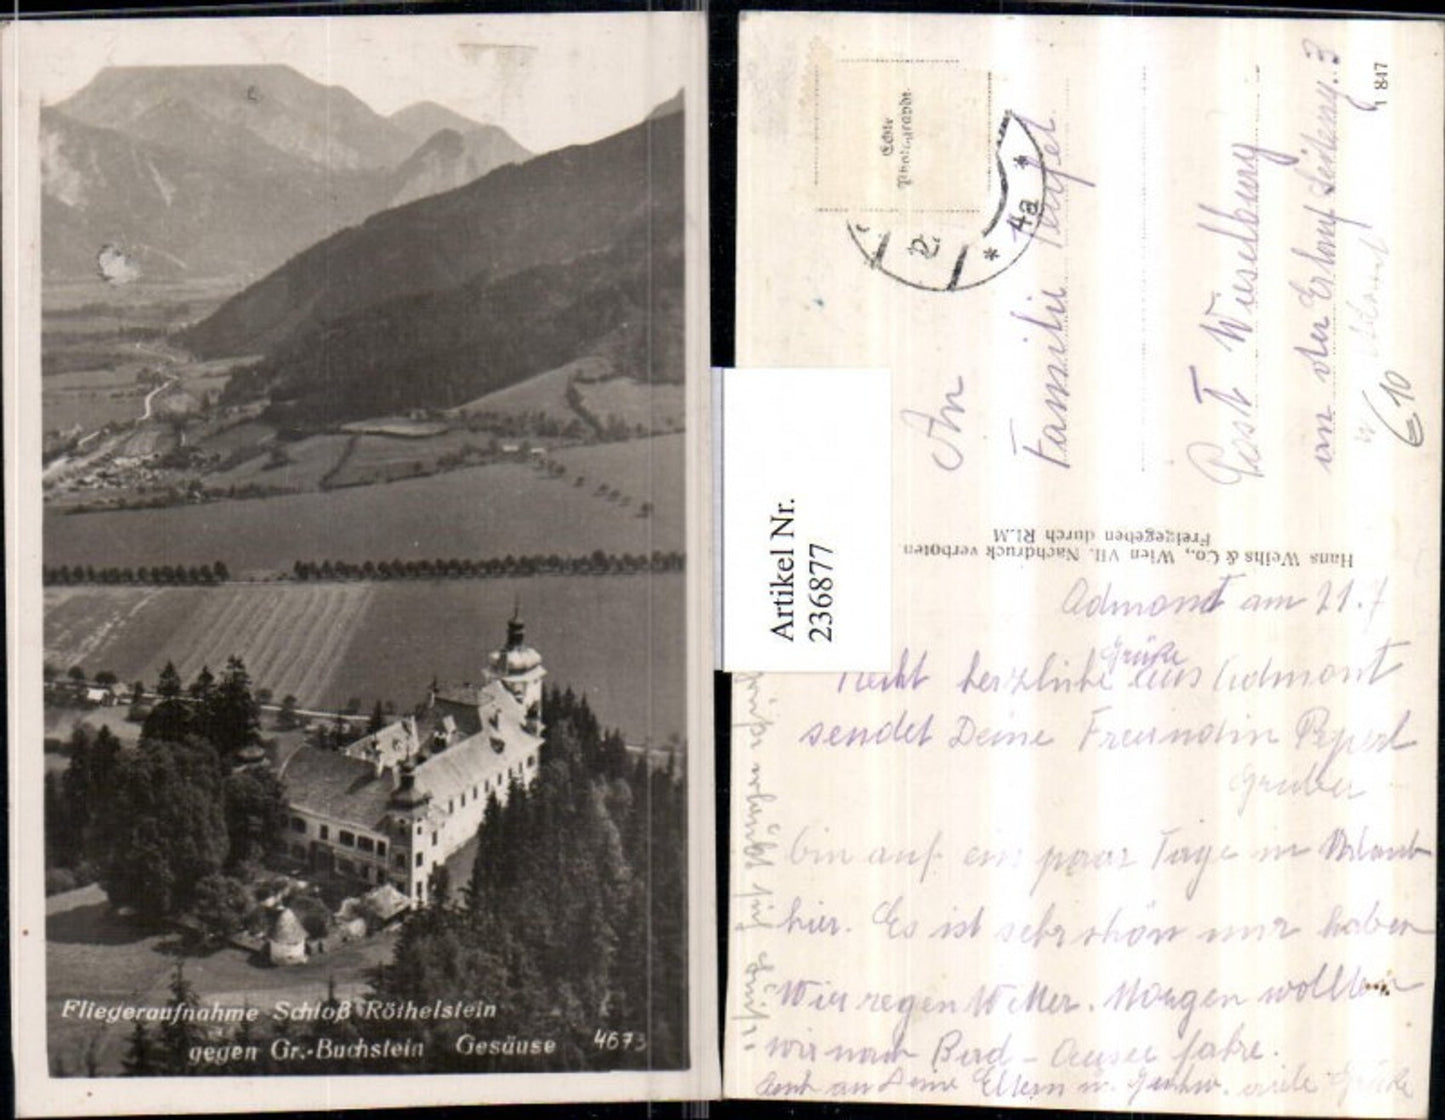 Fliegeraufnahme Schloß Röthelstein
gegen Gr.-Buchstein Gesäuse 4673
Artikel Nr.
236877
Echte
Photographie
4a
1 847
An
Familie
Post Wieselburg
an der Erlauf
€ 10
Hans Weihs & Co., Wien VII. Nachdruck verboten.
Freigegeben durch RLM
Admont am 21.7
Recht herzliche Grüße aus Admont
sendet Deine Freundin Pepperl
Gruber
bin auf ein paar Tage in Urlaub
hier. Es ist sehr schön nur haben
Wir regen Wetter. Morgen wollten
wir nach Bad-Aussee fahre.
Auch an Deine Eltern u. viele Grüße